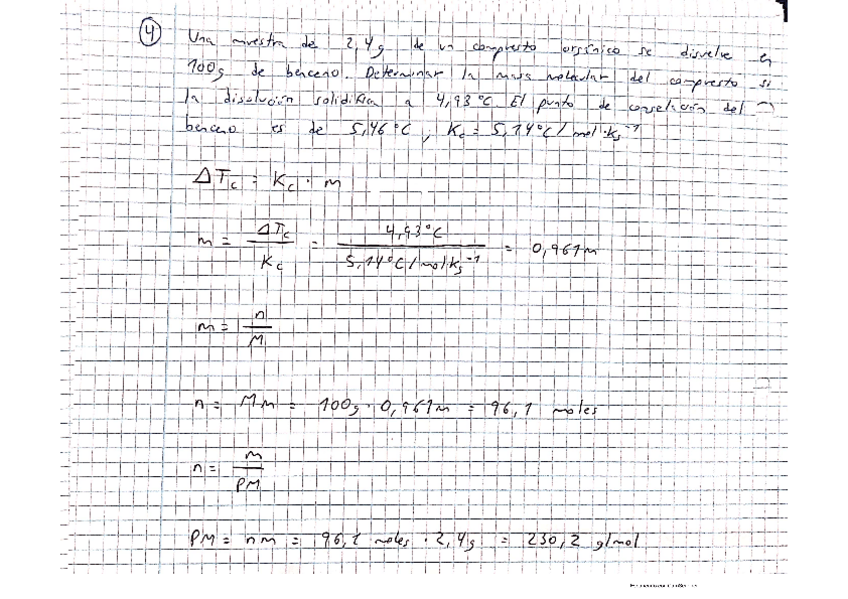 4 Una muestra de 2,4g de un compuesto orgánico se disuelve en
100g de benceno. Determinar la masa molecular del compuesto si
la disolución solidifica a 4,93°C. El punto de congelación del
benceno es de 5,46°C, Kc = 5,14°C/mol·kg⁻¹
ΔTc = Kc · m
m = ΔTc / Kc = 4,93°C / 5,14°C/molkg⁻¹ = 0,961m
m = n / M
n = Mm = 100g · 0,961m = 96,1 moles
n = m / PM
PM = nm = 96,1 moles · 2,4g = 230,2 g/mol